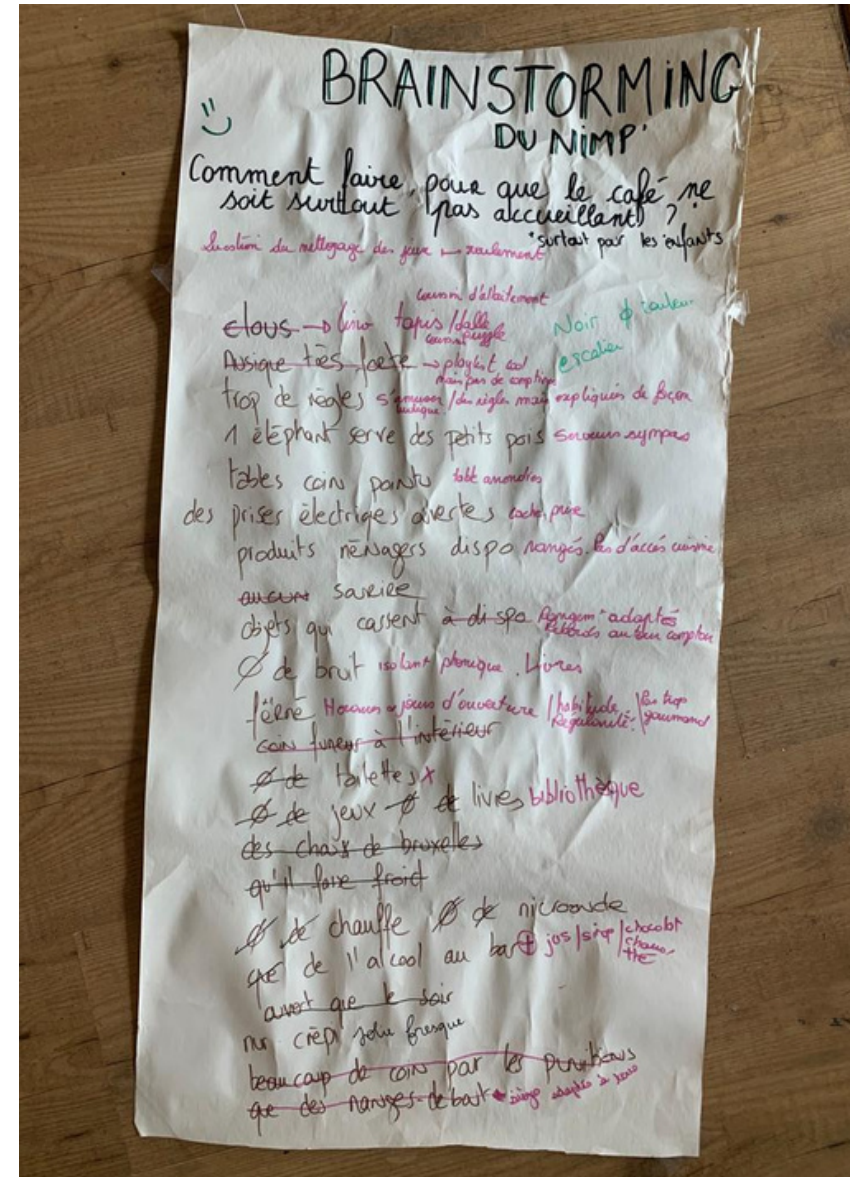 BRAINSTORMING
DU NiMP'
Comment faire, pour que le café ne
soit surtout pas accueillant ?
*surtout par les enfants
Question du nettoyage des jeux → roulement
coussin d'allaitement
clous → lino tapis/dalle
puzzle
Noir ∅ couleur
escalier
Musique très forte → playlist cool
mais pas de comptine
trop de règles s'amuser / des règles mais expliquées de façon
ludique
1 éléphant serve des petits pois Serveurs sympas
tables coin pointu table arrondies
des prises électriqes overtes cache prise
produits ménagers dispo rangés. Pas d'accés cuisine
aucun savire
objets qui cassent à dispo adaptés
rebords autour comptoir
∅ de bruit isolant phonique. Livres
fermé Horaires + jours d'ouverture / habitude / Pas trop
Régularité. gourmand
coin fumeur à l'intérieur
∅ de toilettes x
∅ de jeux ∅ de livres bibliothèque
des choux de bruxelles
qu'il fasse froid
∅ de chauffe ∅ de microonde
que de l'alcool au bar + jos/sirop/chocolat
chaud
thé
ouvert que le soir
mur crépi jolie fresque
beaucoup de coin par les punitions
que des manges-debout